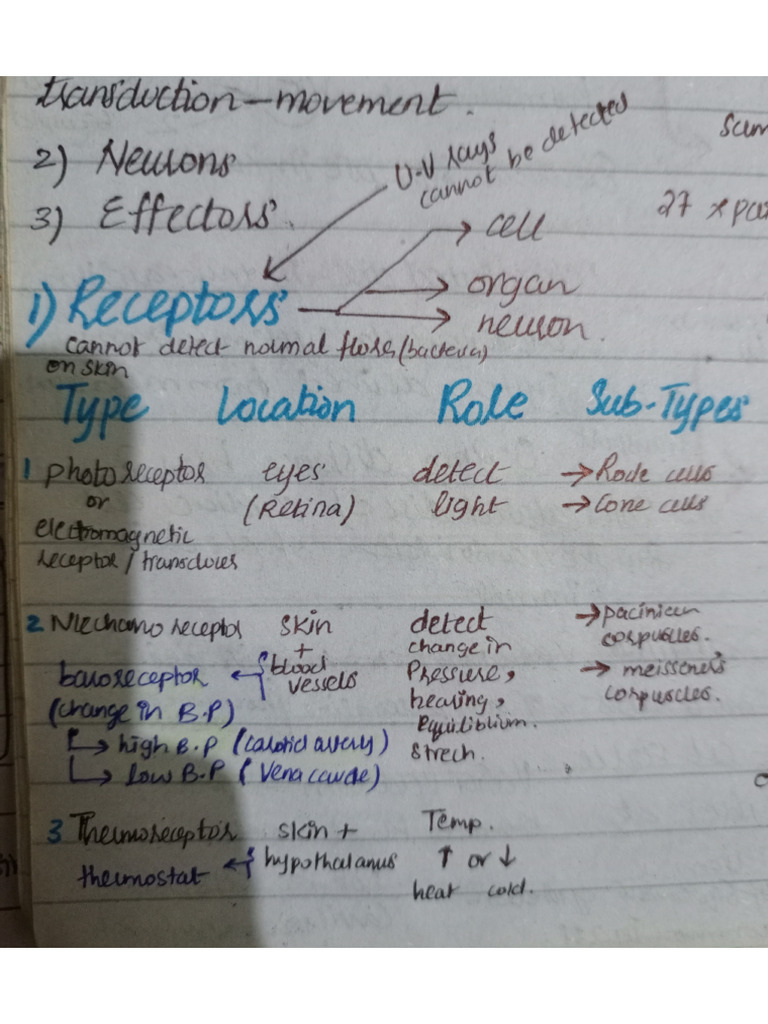 transduction – movement.
2) Neurons
3) Effectors.
U-V rays
cannot be detected
Sum
27 x pai
1) Receptors
→ cell
→ organ
→ neuron.
cannot detect normal flora (bacteria)
on skin
Type Location Role Sub-Types
1 photoreceptor eyes detect → Rode cells
or (Retina) light → Cone cells
electromagnetic
receptor / transducers
2 Mechano receptor skin detect → pacinican
+ change in corpuscles.
baroreceptor ← blood Pressure, → meissener's
(change in B.P) vessels hearing, corpuscles.
→ high B.P (carotid artery) Equilibium.
→ low B.P (vena cavae) strech.
3 Thermoreceptor skin + Temp.
thermostat ← hypothalanus ↑ or ↓
heat cold.